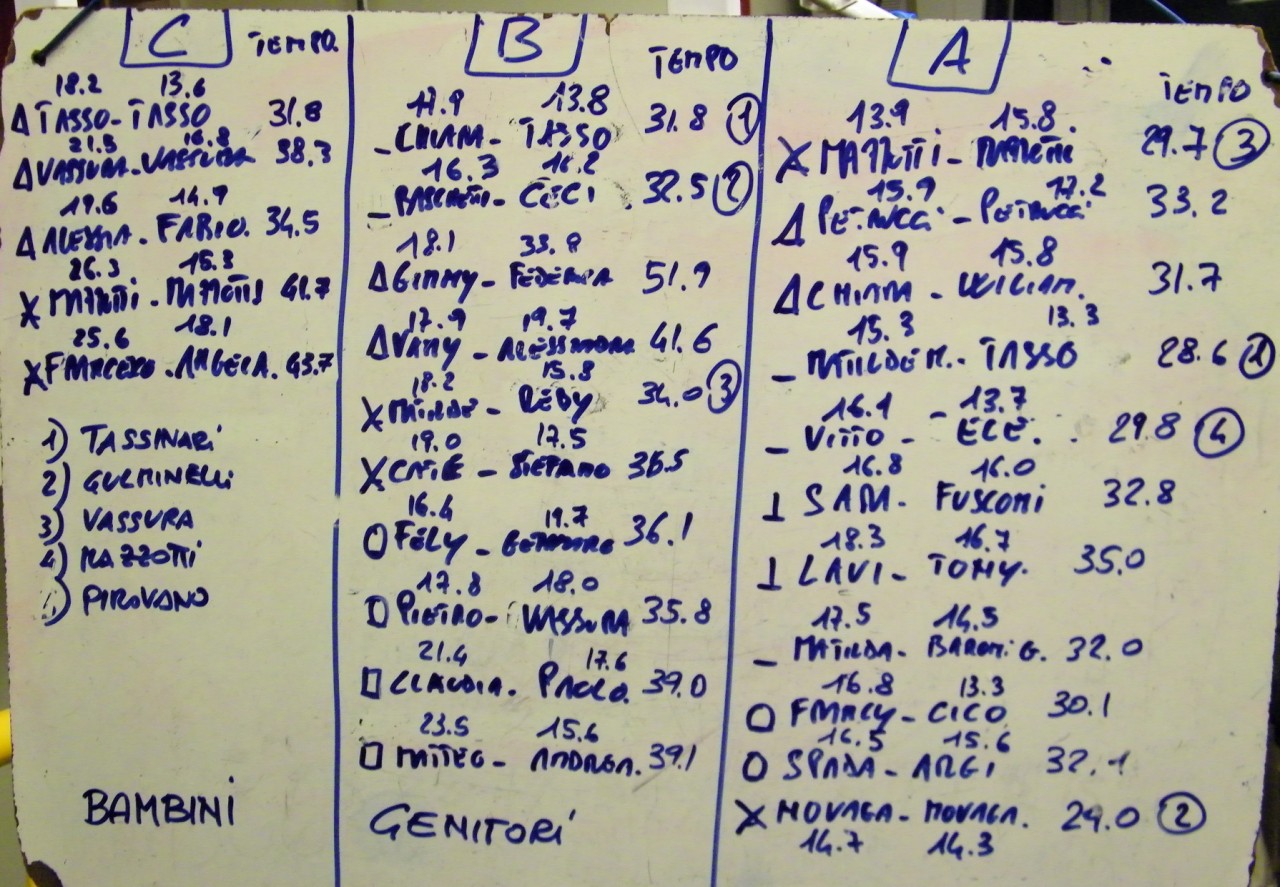 C TEMPO
18.2 13.6
Δ TASSO - TASSO 31.8
21.5 16.8
Δ VASSURA - VASSURA 38.3
19.6 14.9
Δ ALESSIA - FABIO. 34.5
26.3 15.3
X MAZZOTTI - MAZZOTTI 41.7
25.6 18.1
X - ANGELA. 43.7
1) TASSINARI
2) GULMINELLI
3) VASSURA
4) MAZZOTTI
5) PIROVANO
BAMBINI
B TEMPO
17.9 13.8
_ CHIARA - TASSO 31.8 1
16.3 16.2
_ - CECI . 32.5 2
18.1 33.8
Δ GIMMY - FEDERICA 51.9
Δ VAMY - ALESSANDRA 41.6
17.9 19.7
18.2 15.8
X - REBY 34.0 3
19.0 17.5
X - STEFANO 36.5
16.4 19.7
O FELY - 36.1
17.8 18.0
□ PIETRO - VASSURA 35.8
21.4 17.6
□ CLAUDIA - PAOLO. 39.0
23.5 15.6
□ MATTEO - ANDREA. 39.1
GENITORI
A TEMPO
13.9 15.8
X MAZZOTTI - MAZZOTTI 29.7 3
15.9 17.2
Δ PETRUCCI - PETRUCCI 33.2
15.9 15.8
Δ CHIARA - WILLIAM. 31.7
15.3 13.3
_ MATILDE M. - TASSO 28.6 1
16.1 - 13.7
_ VITTO - ECE. 29.8 4
16.8 16.0
⊥ SAM - FUSCONI 32.8
18.3 16.7
⊥ LAVI - TOMY. 35.0
17.5 14.5
_ MATILDA - BARONI G. 32.0
16.8 13.3
O FRANCY - CICO 30.1
16.5 15.6
O SPADA - ARGI 32.1
X NOVAGA - NOVAGA. 29.0 2
14.7 14.3